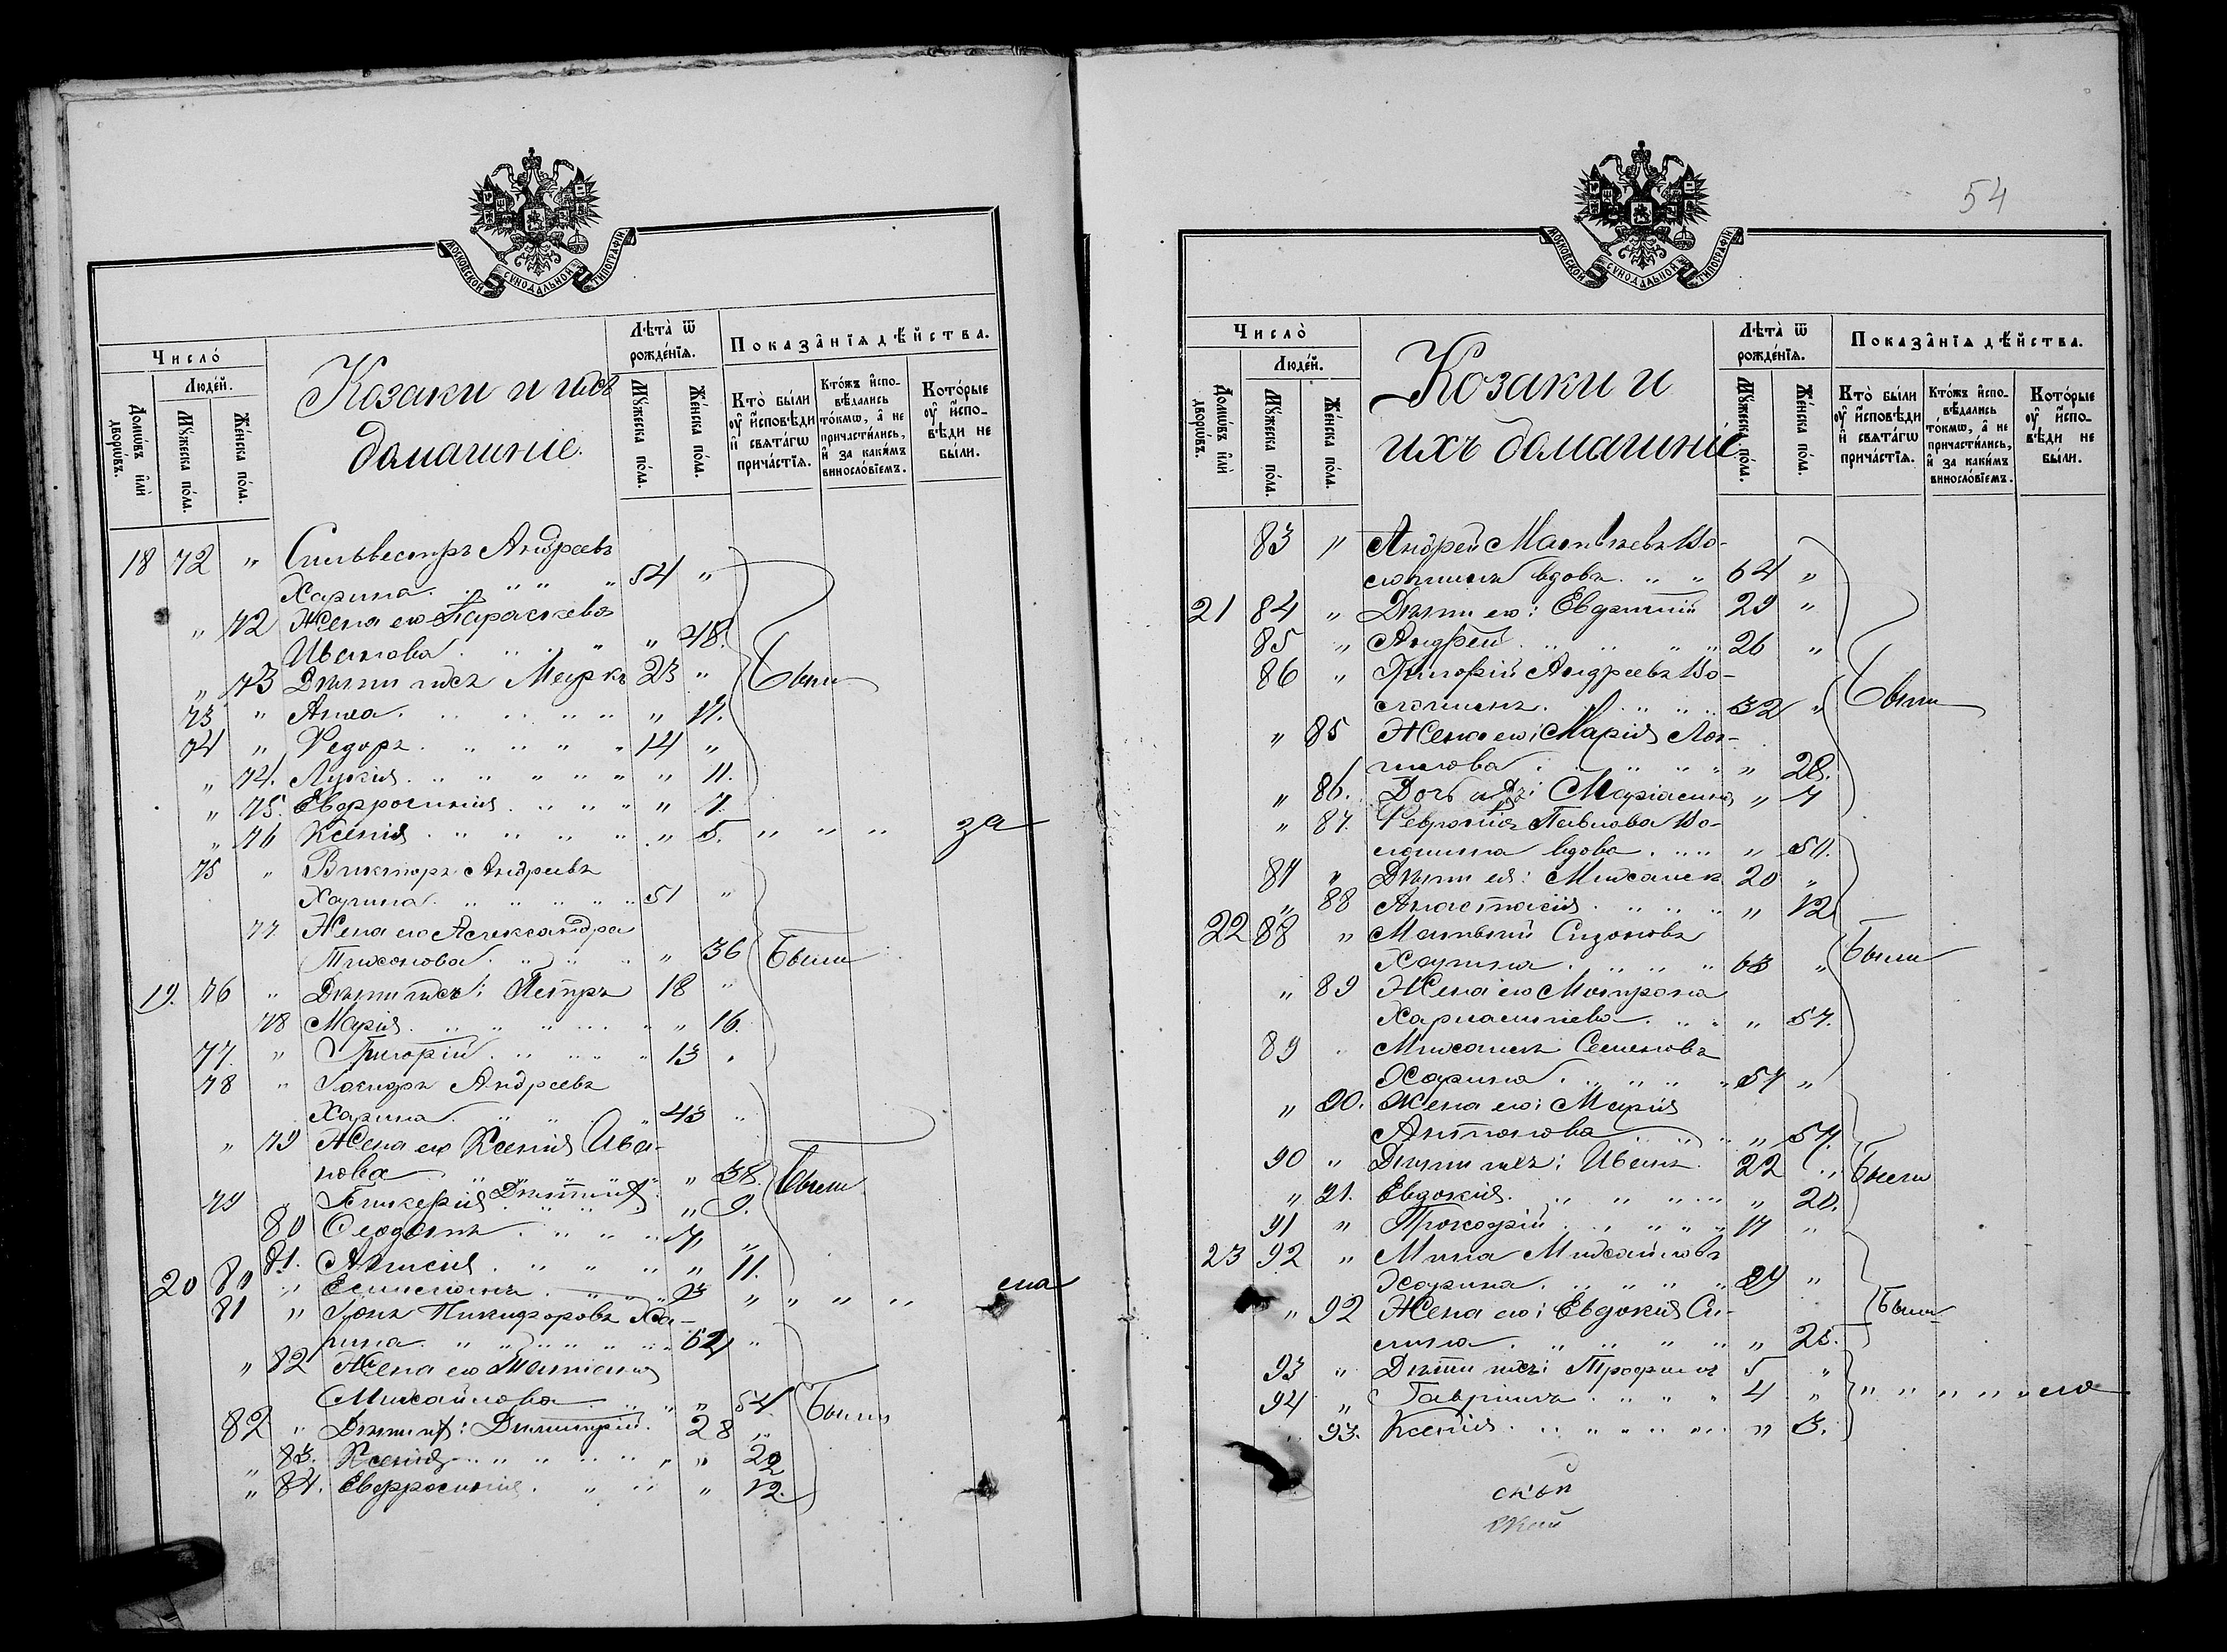 МОСКОВСКОЙ СѴНОДАЛЬНОЙ ТИПОГРАФІИ
Число̀
Люде́й.
Домѡ́въ и҆лѝ дворѡ́въ.
Мꙋ́жеска по́ла.
Же́нска по́ла.
Козаки и ихъ
домашніе.
Лѣ́та ѿ рожде́нїѧ.
Мꙋ́жеска по́ла.
Же́нска по́ла.
Показа̑нїѧ дѣ́йства.
Кто̀ бы́ли ᲂу҆ и҆сповѣди и҆ свѧта́гѡ прича́стїѧ.
Кто́жъ и҆сповѣ́дались то́кмѡ, а҆ не причасти́лись, и҆ за каки́мъ винослó­вїемъ.
Кото́рые ᲂу҆ и҆сповѣди не бы́ли.
18 72 " Сильвестръ Андреевъ
Харина . . " " 54 "
" 72 Жена его Параскева
Иванова . . . " " 48.
" 73 Дѣти ихъ Маркъ 23 " Были
73 " Анна . . . . " 17.
74 " Федоръ . . . . 14 "
" 74. Лукія . . . . " 11.
" 75. Евфросинія . . . " 7.
" 76 Ксенія . . . . " 5. " " " за
75 " Викторъ Андреевъ
Харина . . . . 51 "
77 Жена его Александра
Тихонова . . . " 36 Были
19. 76 " Дѣти ихъ: Петръ 18 "
78 Марія . . . . " 16.
77. " Григорій . . . . 13 "
78 " Андреевъ
Харина . . . 43 "
" 79 Жена его Ксенія Ива-
нова . . . " 38. Были
79 " Гликерія " 9.
80 Феодосъ . . . 7. "
81. Анисія . . . " 11.
20 80 " " " " " " ма
81 " Іонъ Никифоровъ Ха-
рина . . . . 62 "
" 82 Жена его Татіана
Михайлова . . " 54. Были
82 " Дѣти ихъ: Димитрій. 28 "
" 83. Ксенія . . . . " 22
" 84. Евфросинія . . . " 12.
54
МОСКОВСКОЙ СѴНОДАЛЬНОЙ ТИПОГРАФІИ
Число̀
Люде́й.
Домѡ́въ и҆лѝ дворѡ́въ.
Мꙋ́жеска по́ла.
Же́нска по́ла.
Козаки и
ихъ домашніе
Лѣ́та ѿ рожде́нїѧ.
Мꙋ́жеска по́ла.
Же́нска по́ла.
Показа̑нїѧ дѣ́йства.
Кто̀ бы́ли ᲂу҆ и҆сповѣди и҆ свѧта́гѡ прича́стїѧ.
Кто́жъ и҆сповѣ́дались то́кмѡ, а҆ не причасти́лись, и҆ за каки́мъ винослó­вїемъ.
Кото́рые ᲂу҆ и҆сповѣди не бы́ли.
83 " Андрей Матвѣевъ Во-
вдовъ . . 64 "
21 84 " Дѣти его: Евфимій 29 "
85 " Андрей . . . . 26 "
86 " Григорій Андреевъ Во-
. . . 32 " Были
" 85 Жена его: Марія Лон-
гинова . . . . " 28.
" 86. Дочь ихъ: Маріамна " 7
" 87. Февронія Павлова Во-
вдова . . . " 57.
87 " Дѣти ея: Михаилъ 20 "
" 88 Анастасія . . . " 12
22 88 " Матвѣй Сизоновъ
Харина . . . . 63 " Были
" 89 Жена его Матрона
Харлампіева . . . " 57.
89 " Михаилъ Семеновъ
Харина . . . . 57 "
" 90. Жена его: Марія
Антонова . . . " 57.
90 " Дѣти ихъ: Иванъ. 22 " Были
" 91. Евдокія . . . . " 20.
91 " Прокофій . . . . 17 "
23 92 " Мина Михайловъ
Харина . . . . 29 "
" 92 Жена его: Евдокія Си-
лина . . . . " 28. Были
93 " Дѣти ихъ: Трофимъ 5 "
94 " Гавріилъ . . . 4 " " " " " " ма
" 93. Ксенія . . . . " 3.